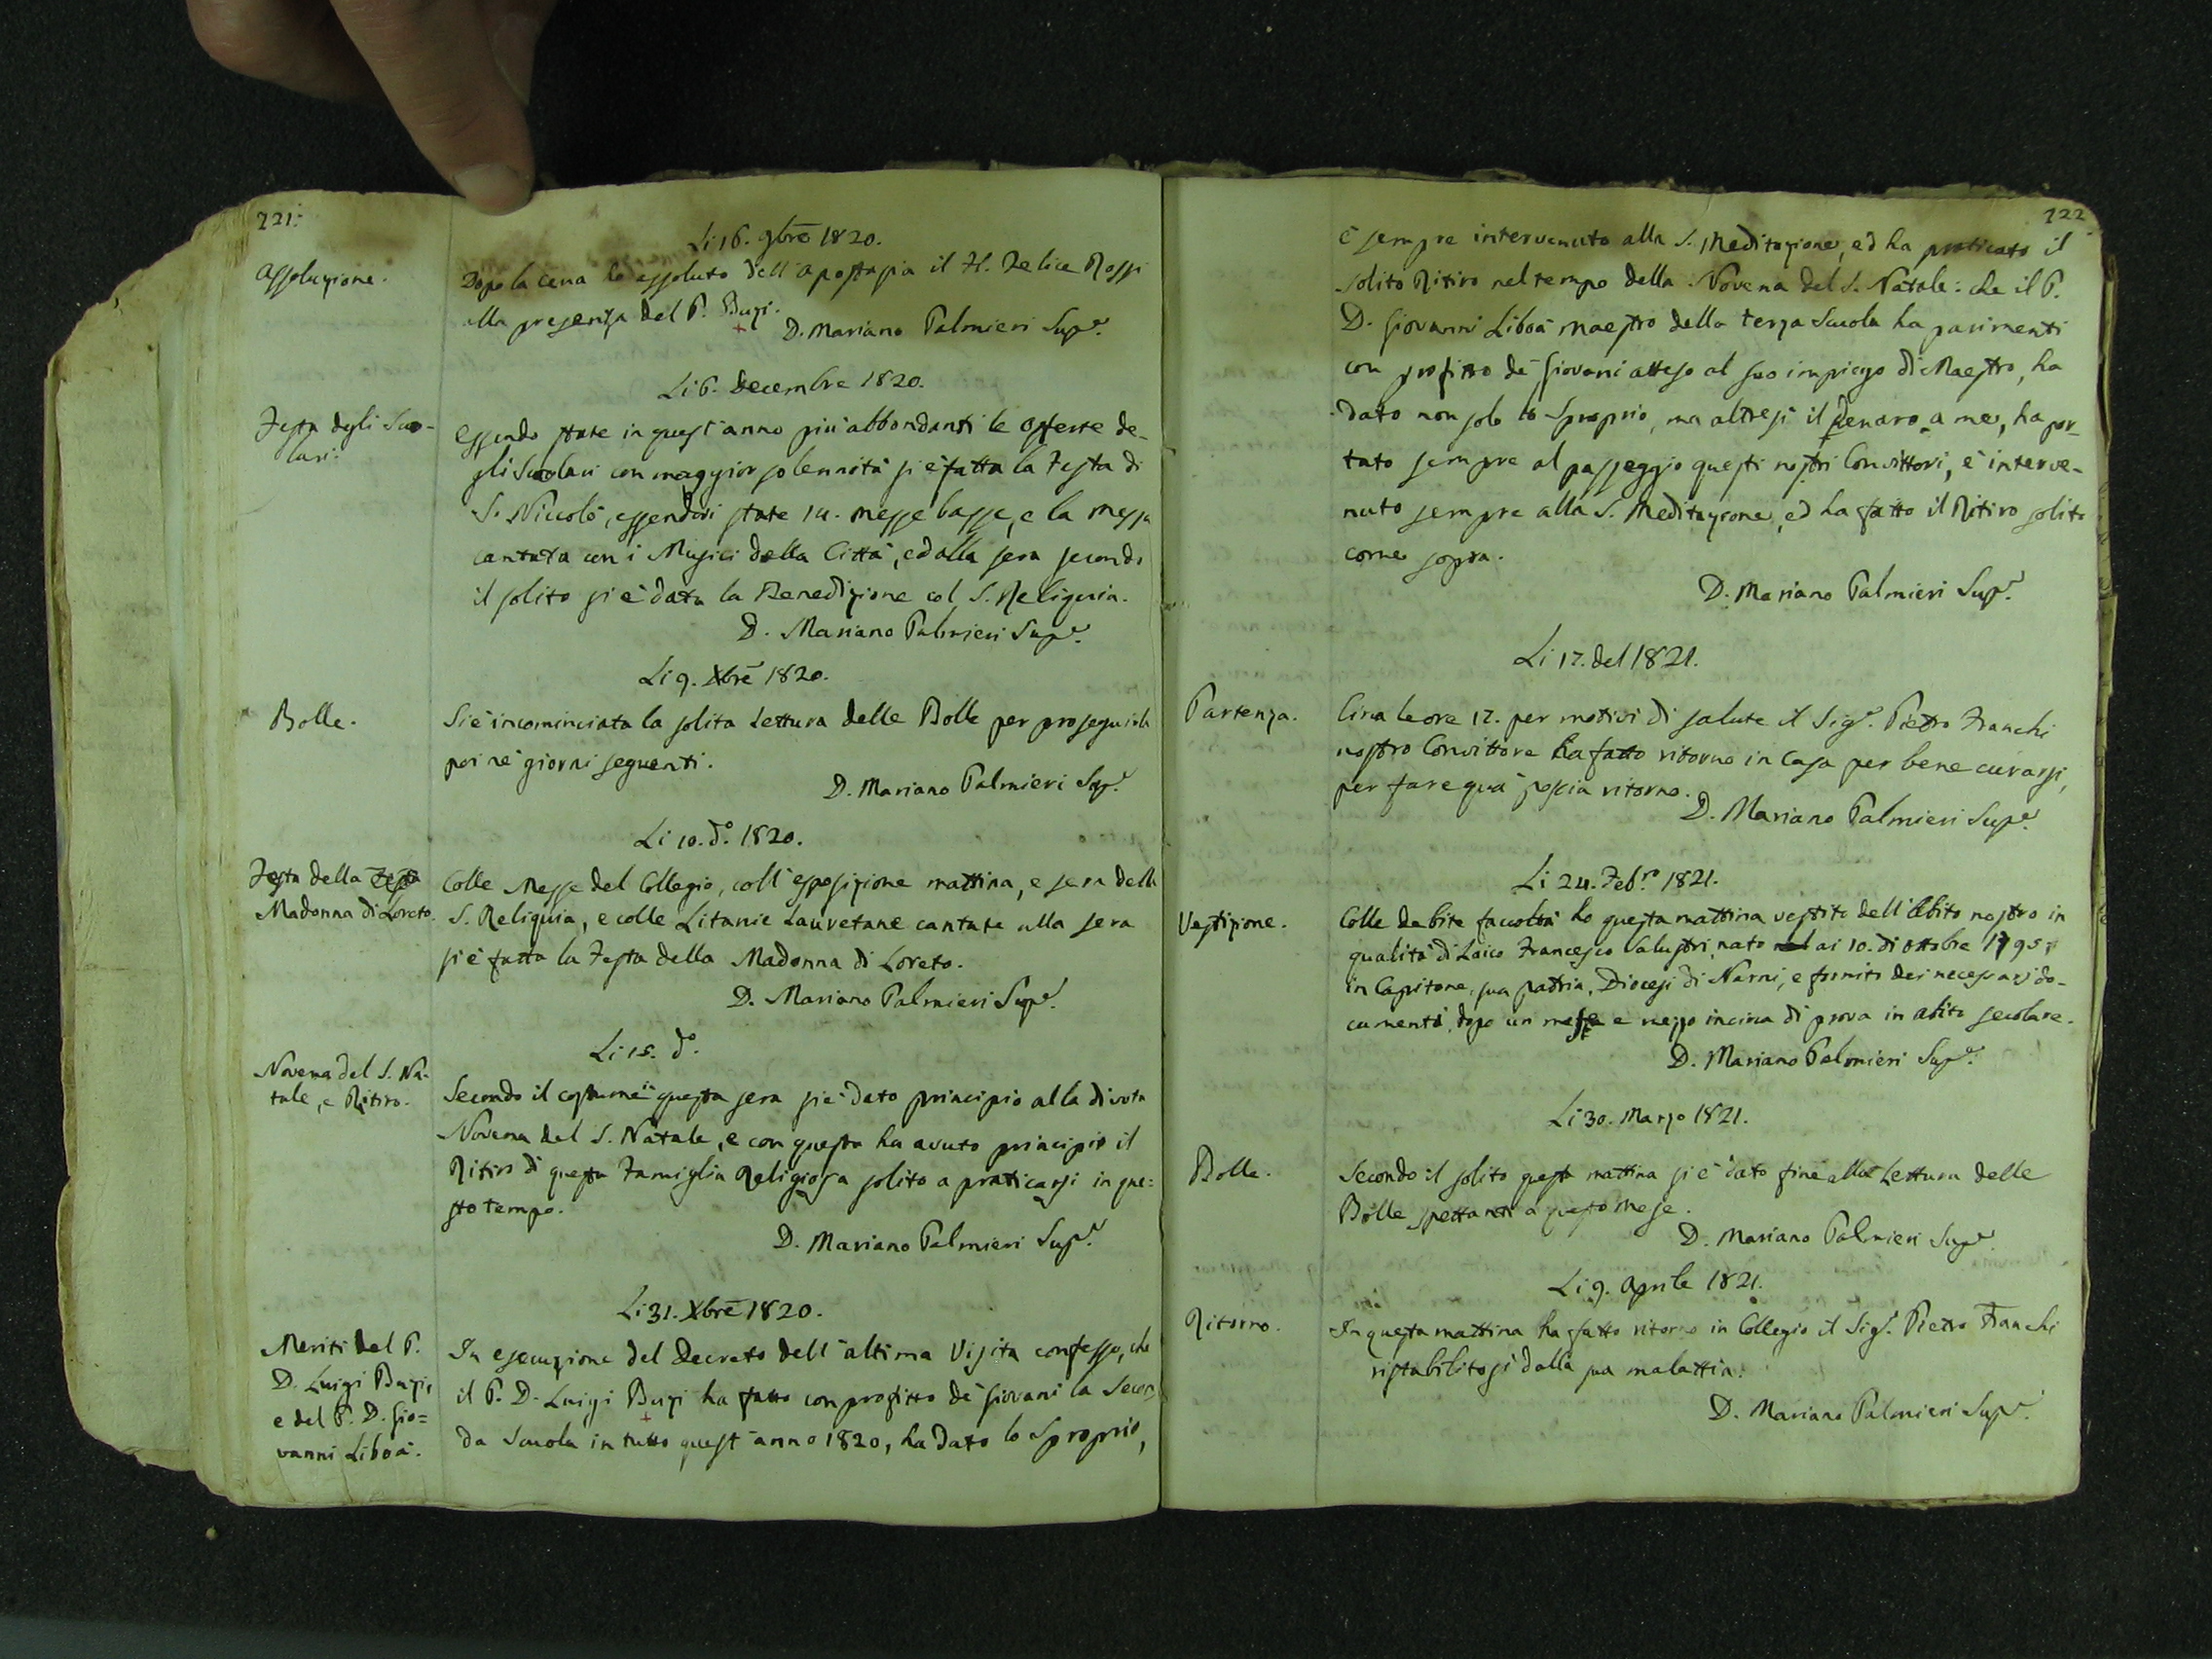 221.
Li 16. 9bre 1820.
Assoluzione.
Dopo la cena ho assoluto dell'apostasia il Fl. Felice Rossi
alla presenza del P. Buzi.
D. Mariano Palmieri Supe.
Li 6. Decembre 1820.
Festa degli Sco-
lari.
Essendo state in quest'anno più abbondanti le offerte de-
gli Scolari con maggior solennità si è fatta la Festa di
S. Niccolò, essendovi state 14. messe basse, e la messa
cantata con i Musici della Città, ed alla sera secondo
il solito si è data la Benedizione col S. Reliquia.
D. Mariano Palmieri Supe.
Li 9. Xbre 1820.
Bolle.
Si è incominciata la solita Lettura delle Bolle per proseguirla
poi nè giorni seguenti.
D. Mariano Palmieri Supe.
Li 10. do. 1820.
Festa della Festa
Madonna di Loreto.
Colle Messe del Collegio, coll'esposizione mattina, e sera della
S. Reliquia, e colle Litanie Lauretane cantate alla sera
si è fatta la Festa della Madonna di Loreto.
D. Mariano Palmieri Supe.
Li 15. do.
Novena del S. Na-
tale, e Ritiro.
Secondo il costume questa sera si è dato principio alla divota
Novena del S. Natale, e con questa ha avuto principio il
Ritiro di questa Famiglia Religiosa solito a praticarsi in que=
sto tempo.
D. Mariano Palmieri Supe.
Li 31. Xbre 1820.
Meriti del P.
D. Luigi Buzi,
e del P. D. Gio=
vanni Liboà.
In esecuzione del Decreto dell'ultima Visita confesso, che
il P. D. Luigi Buzi ha fatto con profitto de' Giovani la Secon-
da Scuola in tutto quest'anno 1820, ha dato lo Sproprio,
222
è sempre intervenuto alla S. Meditazione, ed ha praticato il
solito Ritiro nel tempo della Novena del S. Natale: che il P.
D. Giovanni Liboà maestro della terza Scuola ha parimenti
con profitto de' Giovani atteso al suo impiego di Maestro, ha
dato non solo lo Sproprio, ma altresì il denaro a me, ha por-
tato sempre al passeggio questi nostri Convittori, è interve-
nuto sempre alla S. Meditazione, ed ha fatto il Ritiro solito
come sopra.
D. Mariano Palmieri Supe.
Li 17. del 1821.
Partenza.
Circa le ore 17. per motivi di salute il Sigr. Pietro Franchi
nostro Convittore ha fatto ritorno in Casa per bene curarsi,
per fare quà poscia ritorno.
D. Mariano Palmieri Supe.
Li 24. Febro. 1821.
Vestizione.
Colle debite faccoltà ho questa mattina vestito dell'Abito nostro in
qualità di Laico Francesco Salustri, nato ai 10. di Ottobre 1795,
in Capitone, sua patria, Diocesi di Narni, e fornito dei necessarj do-
cumenti, dopo un mese e mezzo incirca di prova in abito secolare.
D. Mariano Palmieri Supe.
Li 30. Marzo 1821.
Bolle.
Secondo il solito questa mattina si è dato fine alla Lettura delle
Bolle spettanti a questo mese.
D. Mariano Palmieri Supe.
Li 9. Aprile 1821.
Ritorno.
In questa mattina ha fatto ritorno in Collegio il Sigr. Pietro Franchi
ristabilitosi dalla sua malattia.
D. Mariano Palmieri Supe.